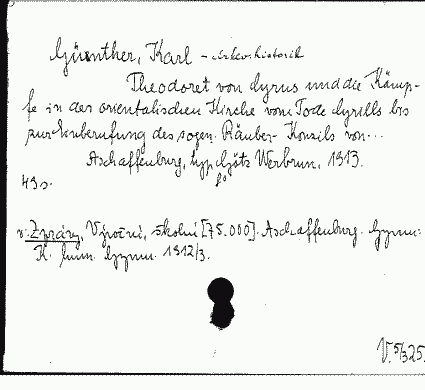 Günther, Karl - církev. historik
Theodoret von Cyrus und die Kämp-
fe in der orientalischen Kirche vom Tode Cyrills bis
zur Einberufung des sogen. Räuber-Konzils von...
Aschaffenburg, typ. Götz Werbrun, 1913.
49 s. 8°
v: Zprávy, Výroční, školní [75.000]. Aschaffenburg. Gymn:
K. hum. Gymn. 1912/3.
V. 5/325.